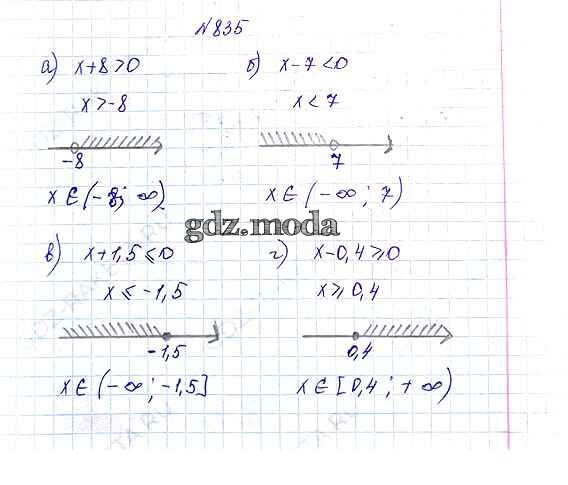 №835
а) x+8>0
x>-8
-8
x∈(-8; ∞)
б) x-7<0
x<7
7
x∈(-∞; 7)
gdz.moda
в) x+1,5≤0
x≤-1,5
-1,5
x∈(-∞; -1,5]
г) x-0,4≥0
x≥0,4
0,4
x∈[0,4; +∞)